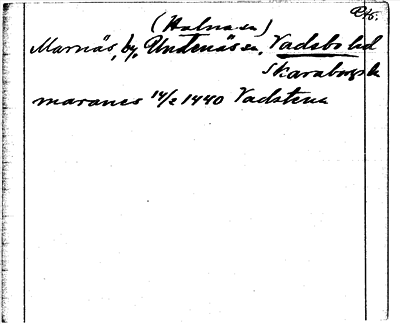 RAp.
(Halna sn)
Marnäs, by, Undenäs sn, Vadsbo hd
Skaraborgs l.
maranes 14/2 1440 Vadstena